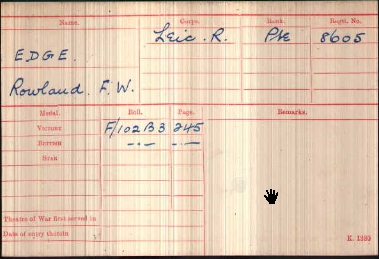 Name. Corps. Rank. Regtl. No.
Leic. R. Pte 8605
EDGE.
Rowland. F. W.
Medal. Roll. Page. Remarks.
VICTORY F/102 B3 245
BRITISH -·- -·-
STAR
Theatre of War first served in
Date of entry therein
K. 1380